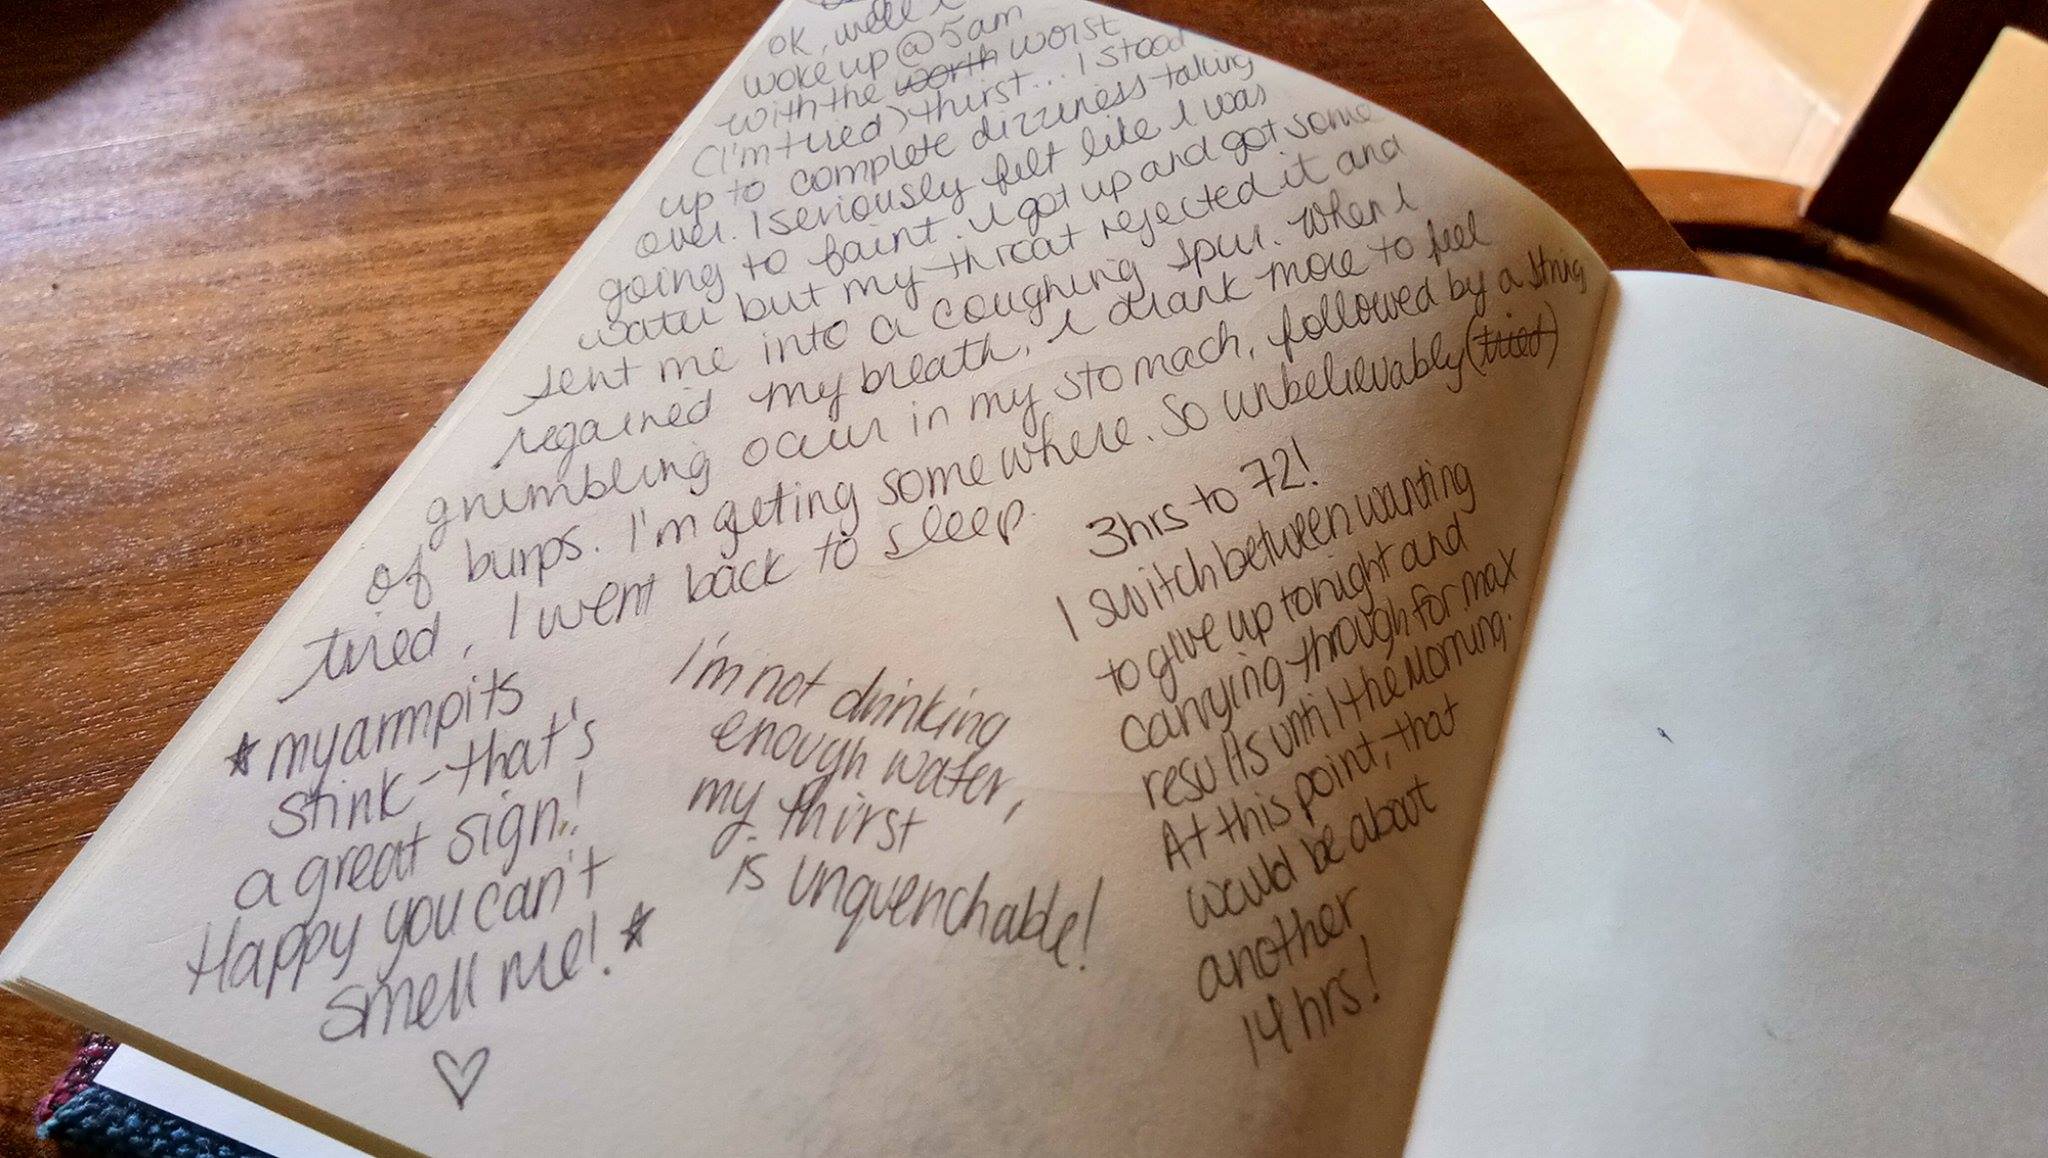 ok, well I
woke up @ 5am
with the worth worst
(I'm tired) thirst... I stood
up to complete dizziness taking
over. I seriously felt like I was
going to faint. I got up and got some
water but my throat rejected it and
sent me into a coughing spur. When I
regained my breath, I drank more to feel
grumbling occur in my stomach, followed by a string
of burps. I'm geting somewhere. So unbelievably (tried)
tired, I went back to sleep.
*my armpits
stink - that's
a great sign!
Happy you can't
smell me! *
I'm not drinking
enough water,
my thirst
is unquenchable!
3hrs to 72!
I switch between wanting
to give up tonight and
carrying through for max
results until the morning.
At this point, that
would be about
another
14 hrs!